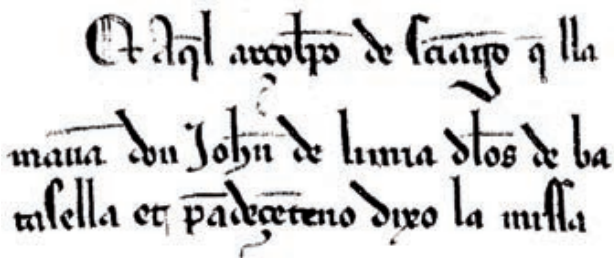 Et Aq̃l arçob̃po de sc̃iago q̃ lla
maua don Joh̃n de limia dlos de ba
tasella et p̃adeçẽteno dixo la missa